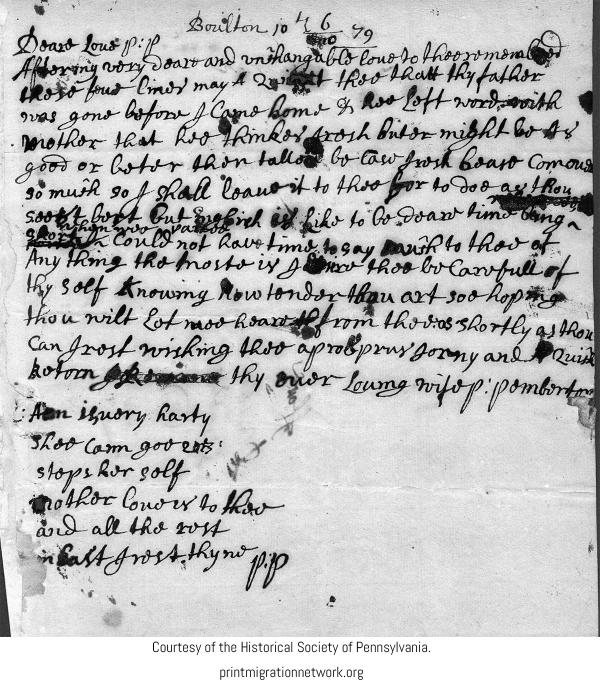 Boulton 10 6 79
Deare Love p:p
After my very deare and unchangable love to thee remembred
these feue lines may A Quaint thee thatt thy father
was gone before J Came home & hee Left word with
mother that hee thinkes fresh buter might be As
good or beter then tallow be Case fresh bease Comes
so much so J shall leave it to thee for to doe as thou
seest best but wich is like to be deare time being
short when wee parted
Could not have time to say much to thee of
Any thing the moste is J desire thee be Carefull of
thy self Knowing How tender thou art soe hoping
thou wilt Let mee heare from thee as shortly as thou
Can J rest wishing thee a prosprus Jorny and A Quik
Retorn thy ever Loving wife p: pemberton
Ann is very harty
shee Cann goe
steps her self
mother love is to thee
and all the rest
in hast J rest thyne p:p
Courtesy of the Historical Society of Pennsylvania.
printmigrationnetwork.org